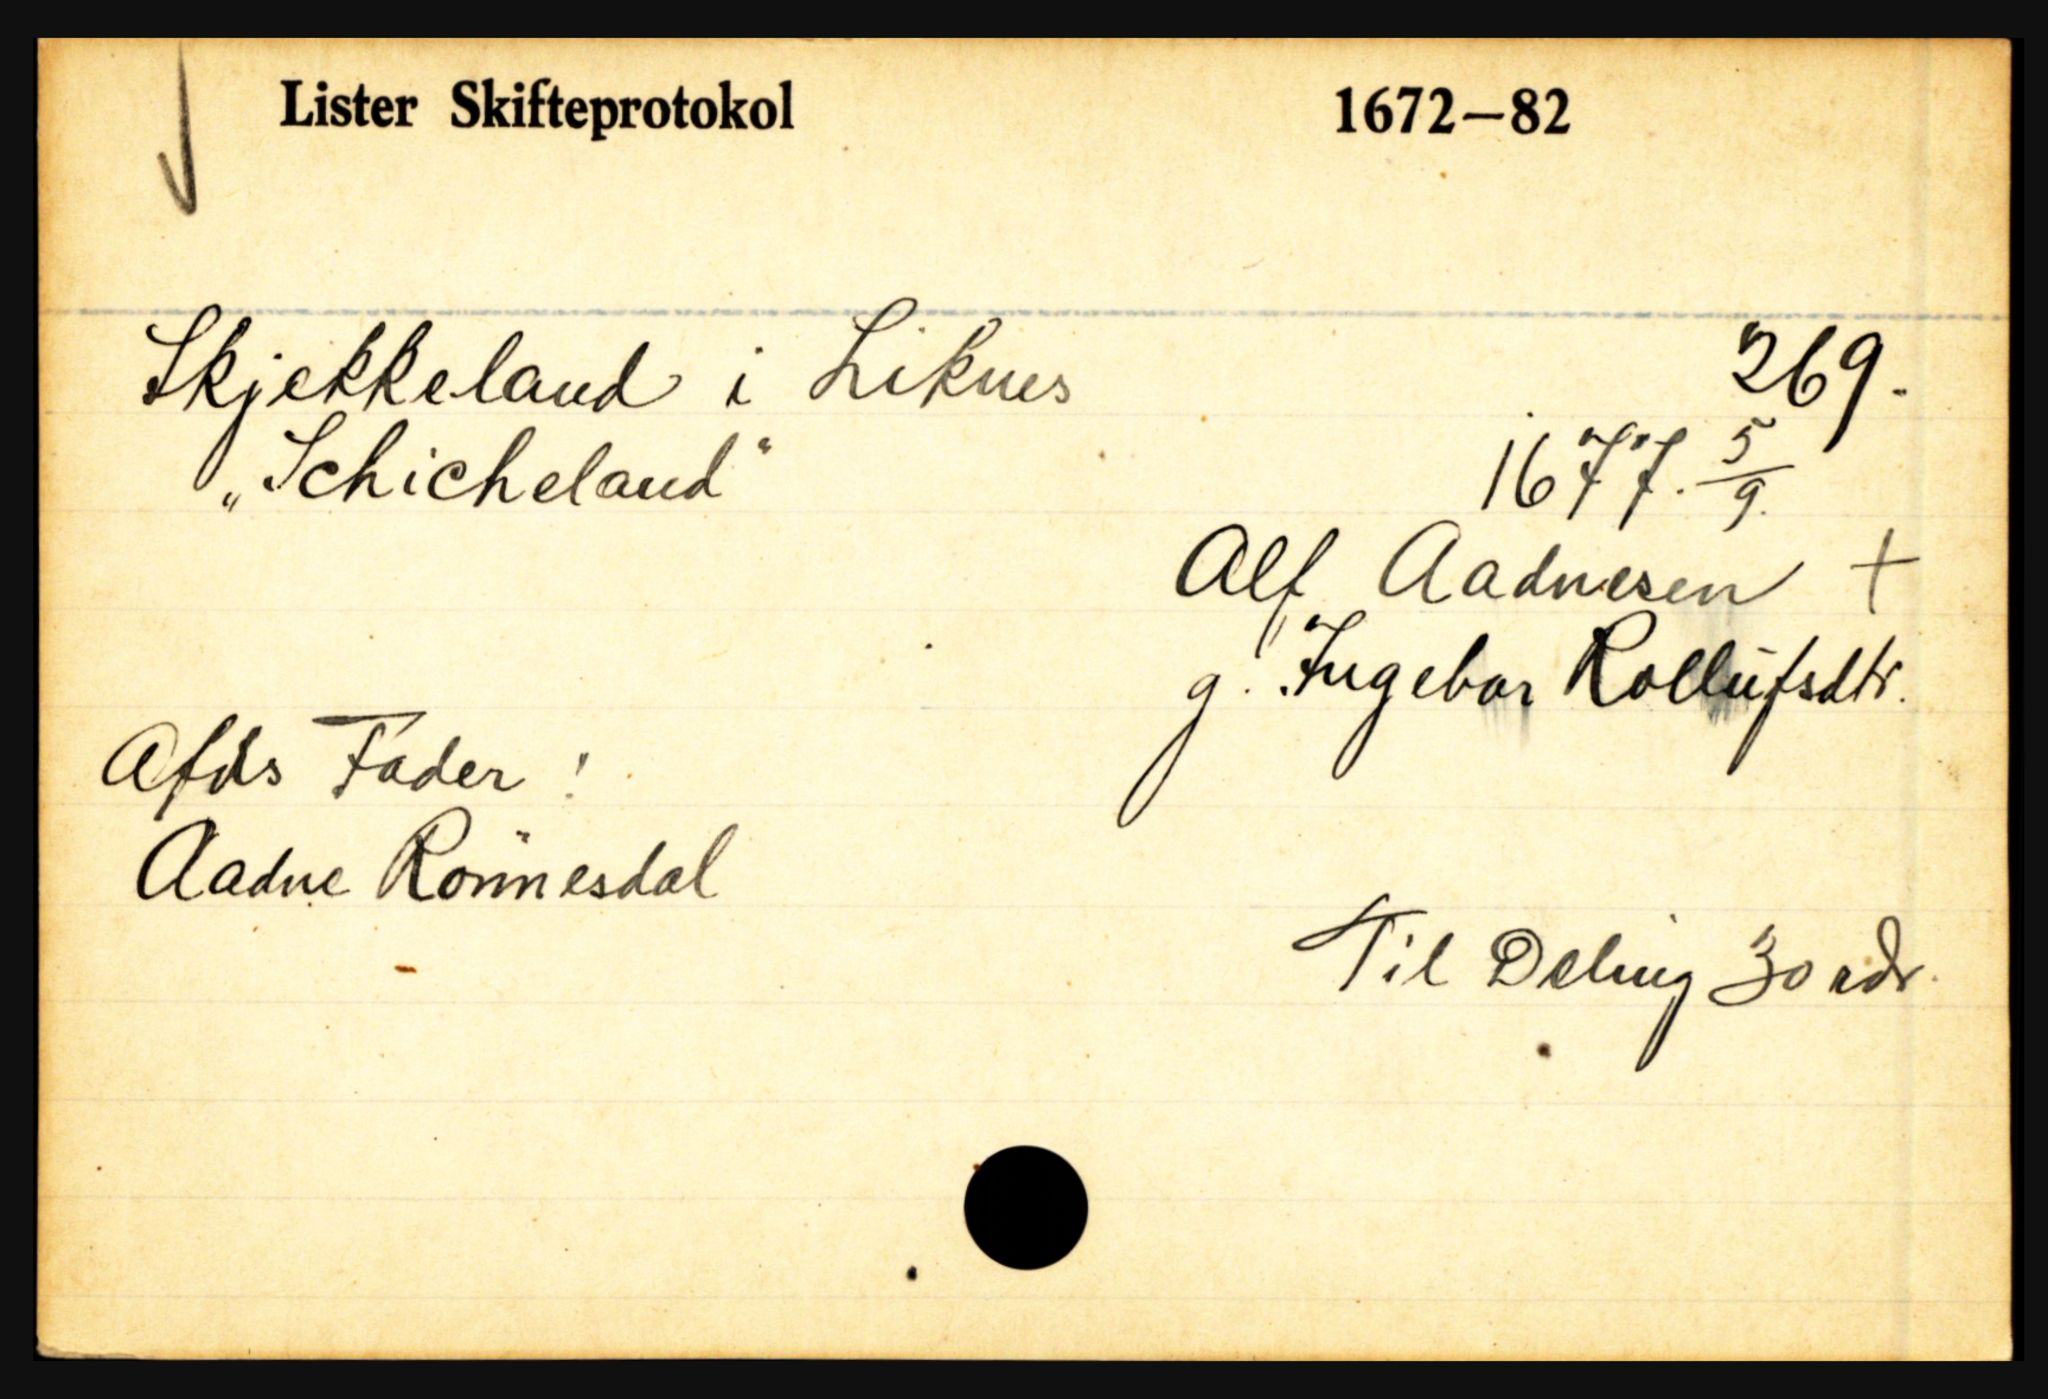 Lister Skifteprotokol 1672–82
Skjekkeland i Liknes 269.
„Schicheland“ 1677. 5/9.
Alf Aadnesen +
g. Ingebor Rollufsdtr.
Afds Fader:
Aadne Rönnesdal
Til Deling 30 rdr.